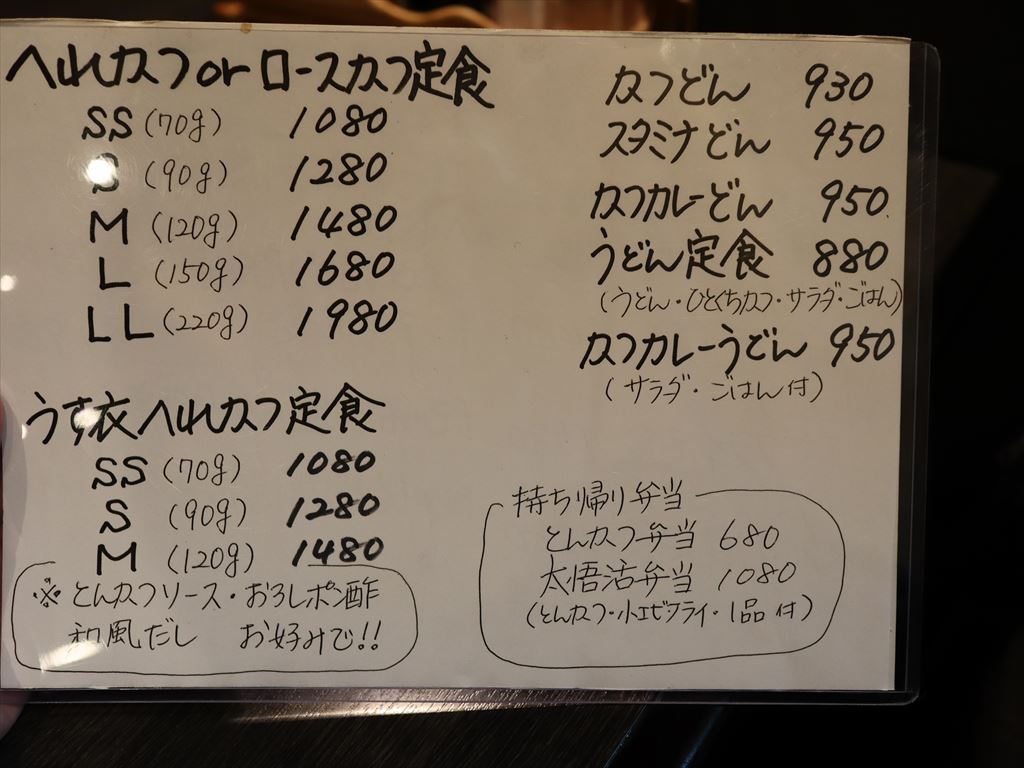 ヘレカツorロースカツ定食
SS(70g) 1080
S(90g) 1280
M(120g) 1480
L(150g) 1680
LL(220g) 1980
うす衣ヘレカツ定食
SS(70g) 1080
S(90g) 1280
M(120g) 1480
※とんカツソース・おろしポン酢
和風だし お好みで!!
カツどん 930
スタミナどん 950
カツカレーどん 950
うどん定食 880
(うどん・ひとくちカツ・サラダ・ごはん)
カツカレーうどん 950
(サラダ・ごはん付)
持ち帰り弁当
とんカツ弁当 680
太悟活弁当 1080
(とんカツ・小エビフライ・1品付)